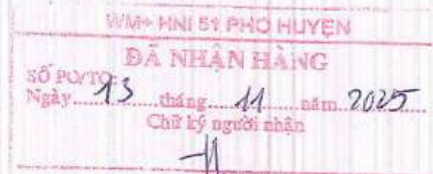 WM+ HNI 51 PHO HUYEN
ĐÃ NHẬN HÀNG
SỐ PO/TO:
Ngày 13 tháng 11 năm 2025
Chữ ký người nhận